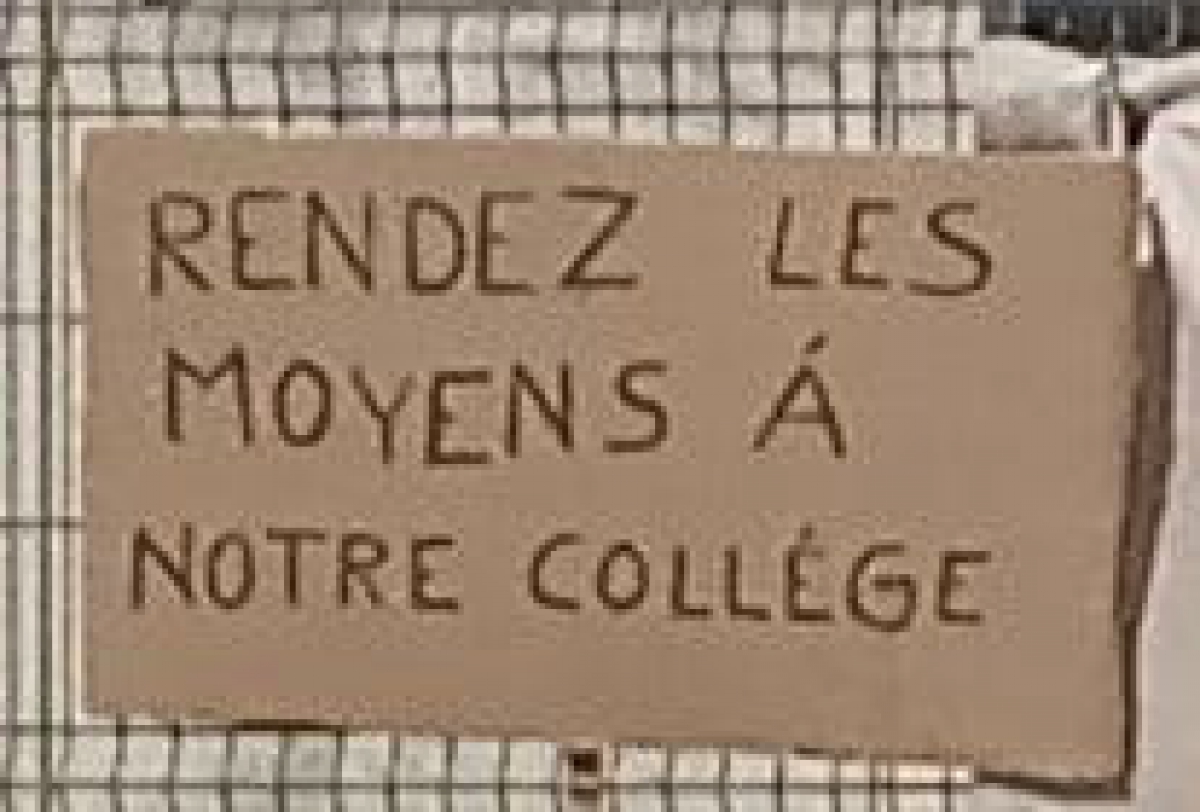 RENDEZ LES
MOYENS Á
NOTRE COLLÉGE